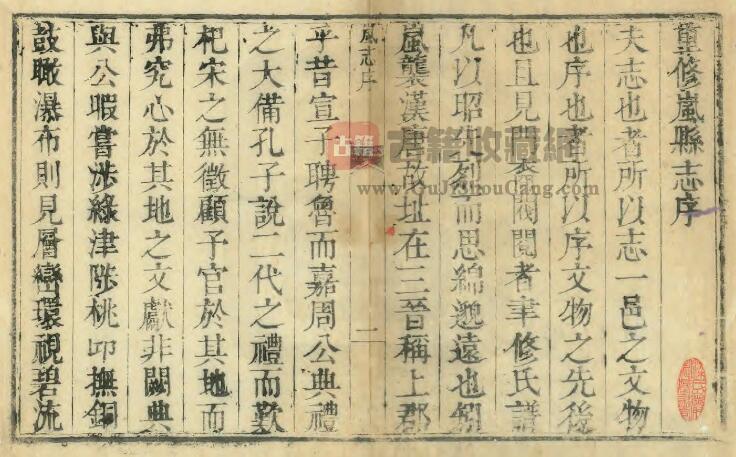 重修嵐縣志序
夫志也者所以志一邑之文物
也序也者所以序文物之先後
也且見閥閱者聿修氏譜
凡以昭先烈而思綿邈遠也矧
嵐襲漢唐故址在三晉稱上郡
嵐志序
一
乎昔宣子聘魯而嘉周公典禮
之大備孔子說二代之禮而歎
杞宋之無徵顧予官於其地而
弗究心於其地之文獻非闕典
與公暇嘗涉綠津陟桃卬撫銅
鼓瞰瀑布則見層巒環視碧流
古籍
古籍收藏網
www.GuJiShouCang.com